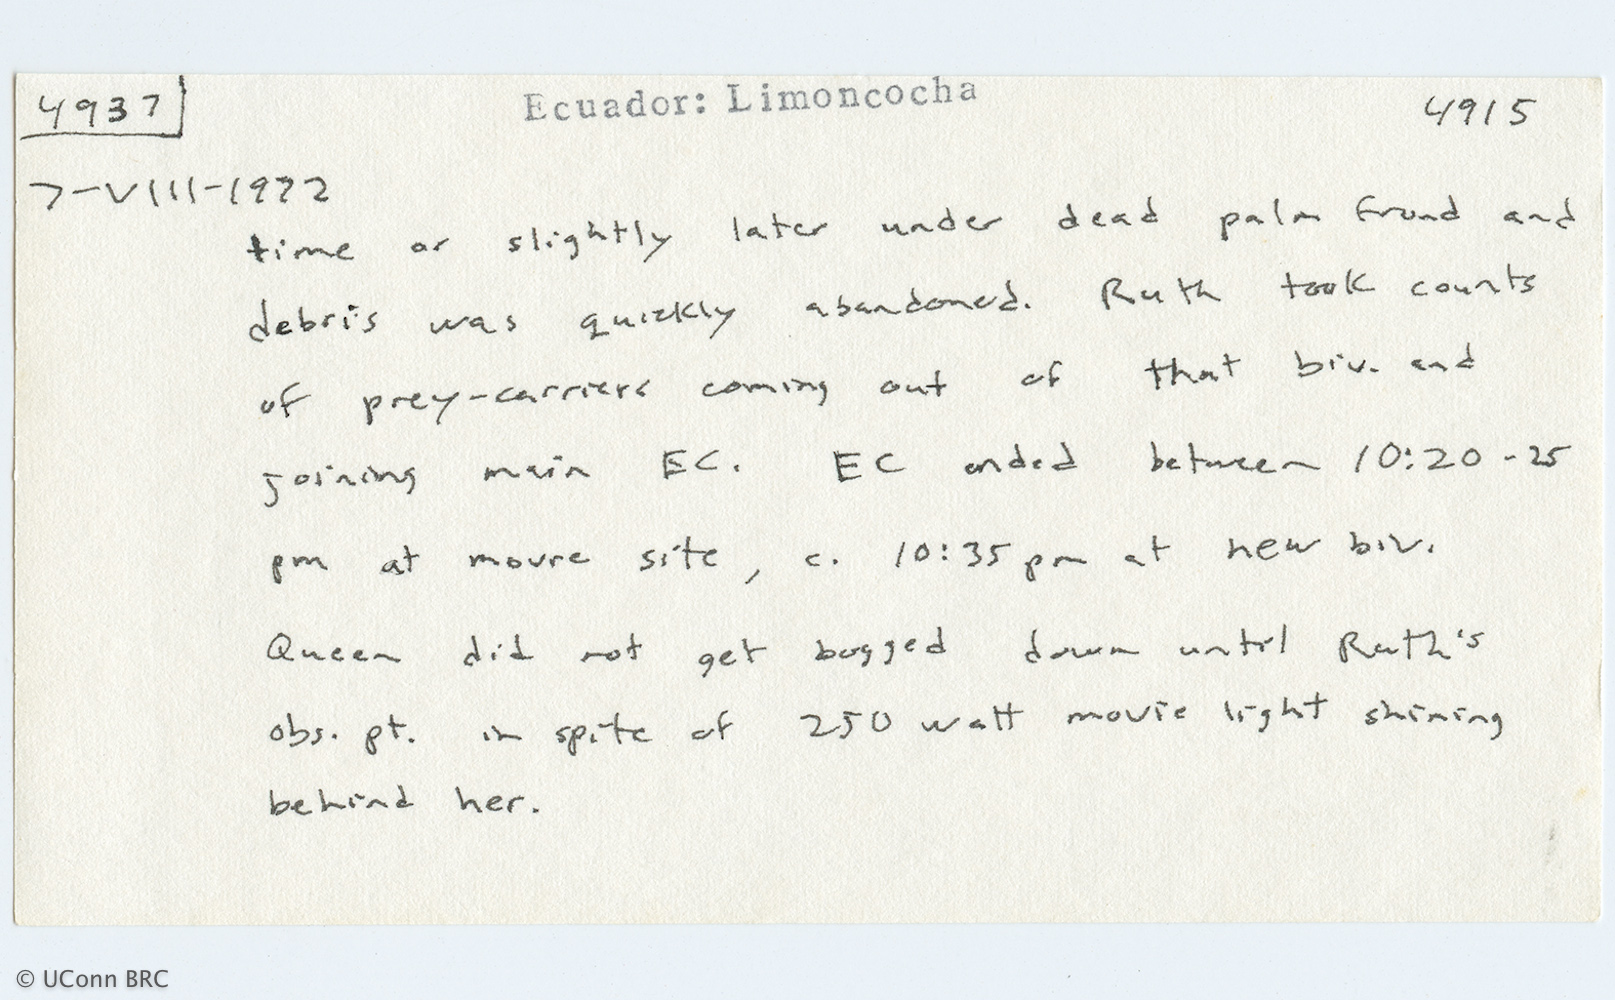 4937 Ecuador: Limoncocha 4915
7-VIII-1972
time or slightly later under dead palm frond and
debris was quickly abandoned. Ruth took counts
of prey-carriers coming out of that biv. and
joining main EC. EC ended between 10:20-25
pm at movre site, c. 10:35 pm at new biv.
Queen did not get bogged down until Ruth's
obs. pt. in spite of 250 watt movie light shining
behind her.
© UConn BRC